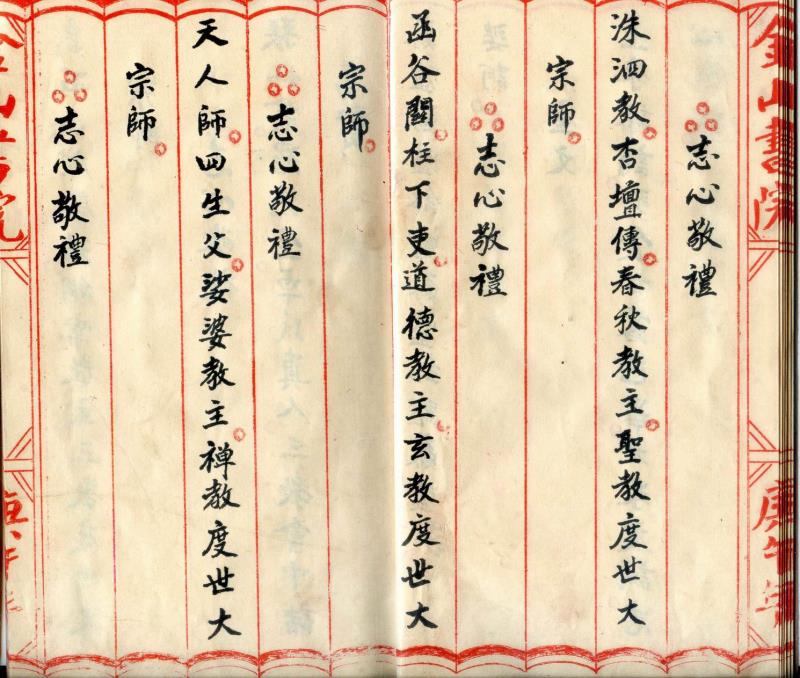 金山書院
庚午年
志心敬禮
洙泗教杏壇傳春秋教主聖教度世大
宗師
志心敬禮
函谷關柱下吏道德教主玄教度世大
宗師
志心敬禮
天人師四生父娑婆教主禅教度世大
宗師
志心敬禮